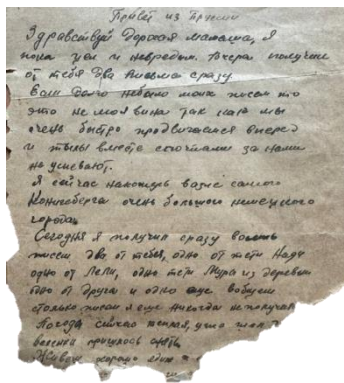 Привет из Пруссии
Здравствуй дорогая мамаша, я
пока цел и невредим. Вчера получил
от тебя два письма сразу.
вам долго небыло моих писем то
это не моя вина так как мы
очень быстро продвигаемся вперед
и тылы вместе спочтами за нами
не успевают.
Я сейчас нахожусь возле самого
Кенигсберга очень большого немецкого
города.
Сегодня я получил сразу восемь
писем два от тебя, одно от тети Нади
одно от Лели, одно тети Мура из деревни
одно от друга и одно еще вобщем
столько писем я еще никогда не получал
Погода сейчас теплая, уже
валенки пришлось снять
Живем хорошо едим